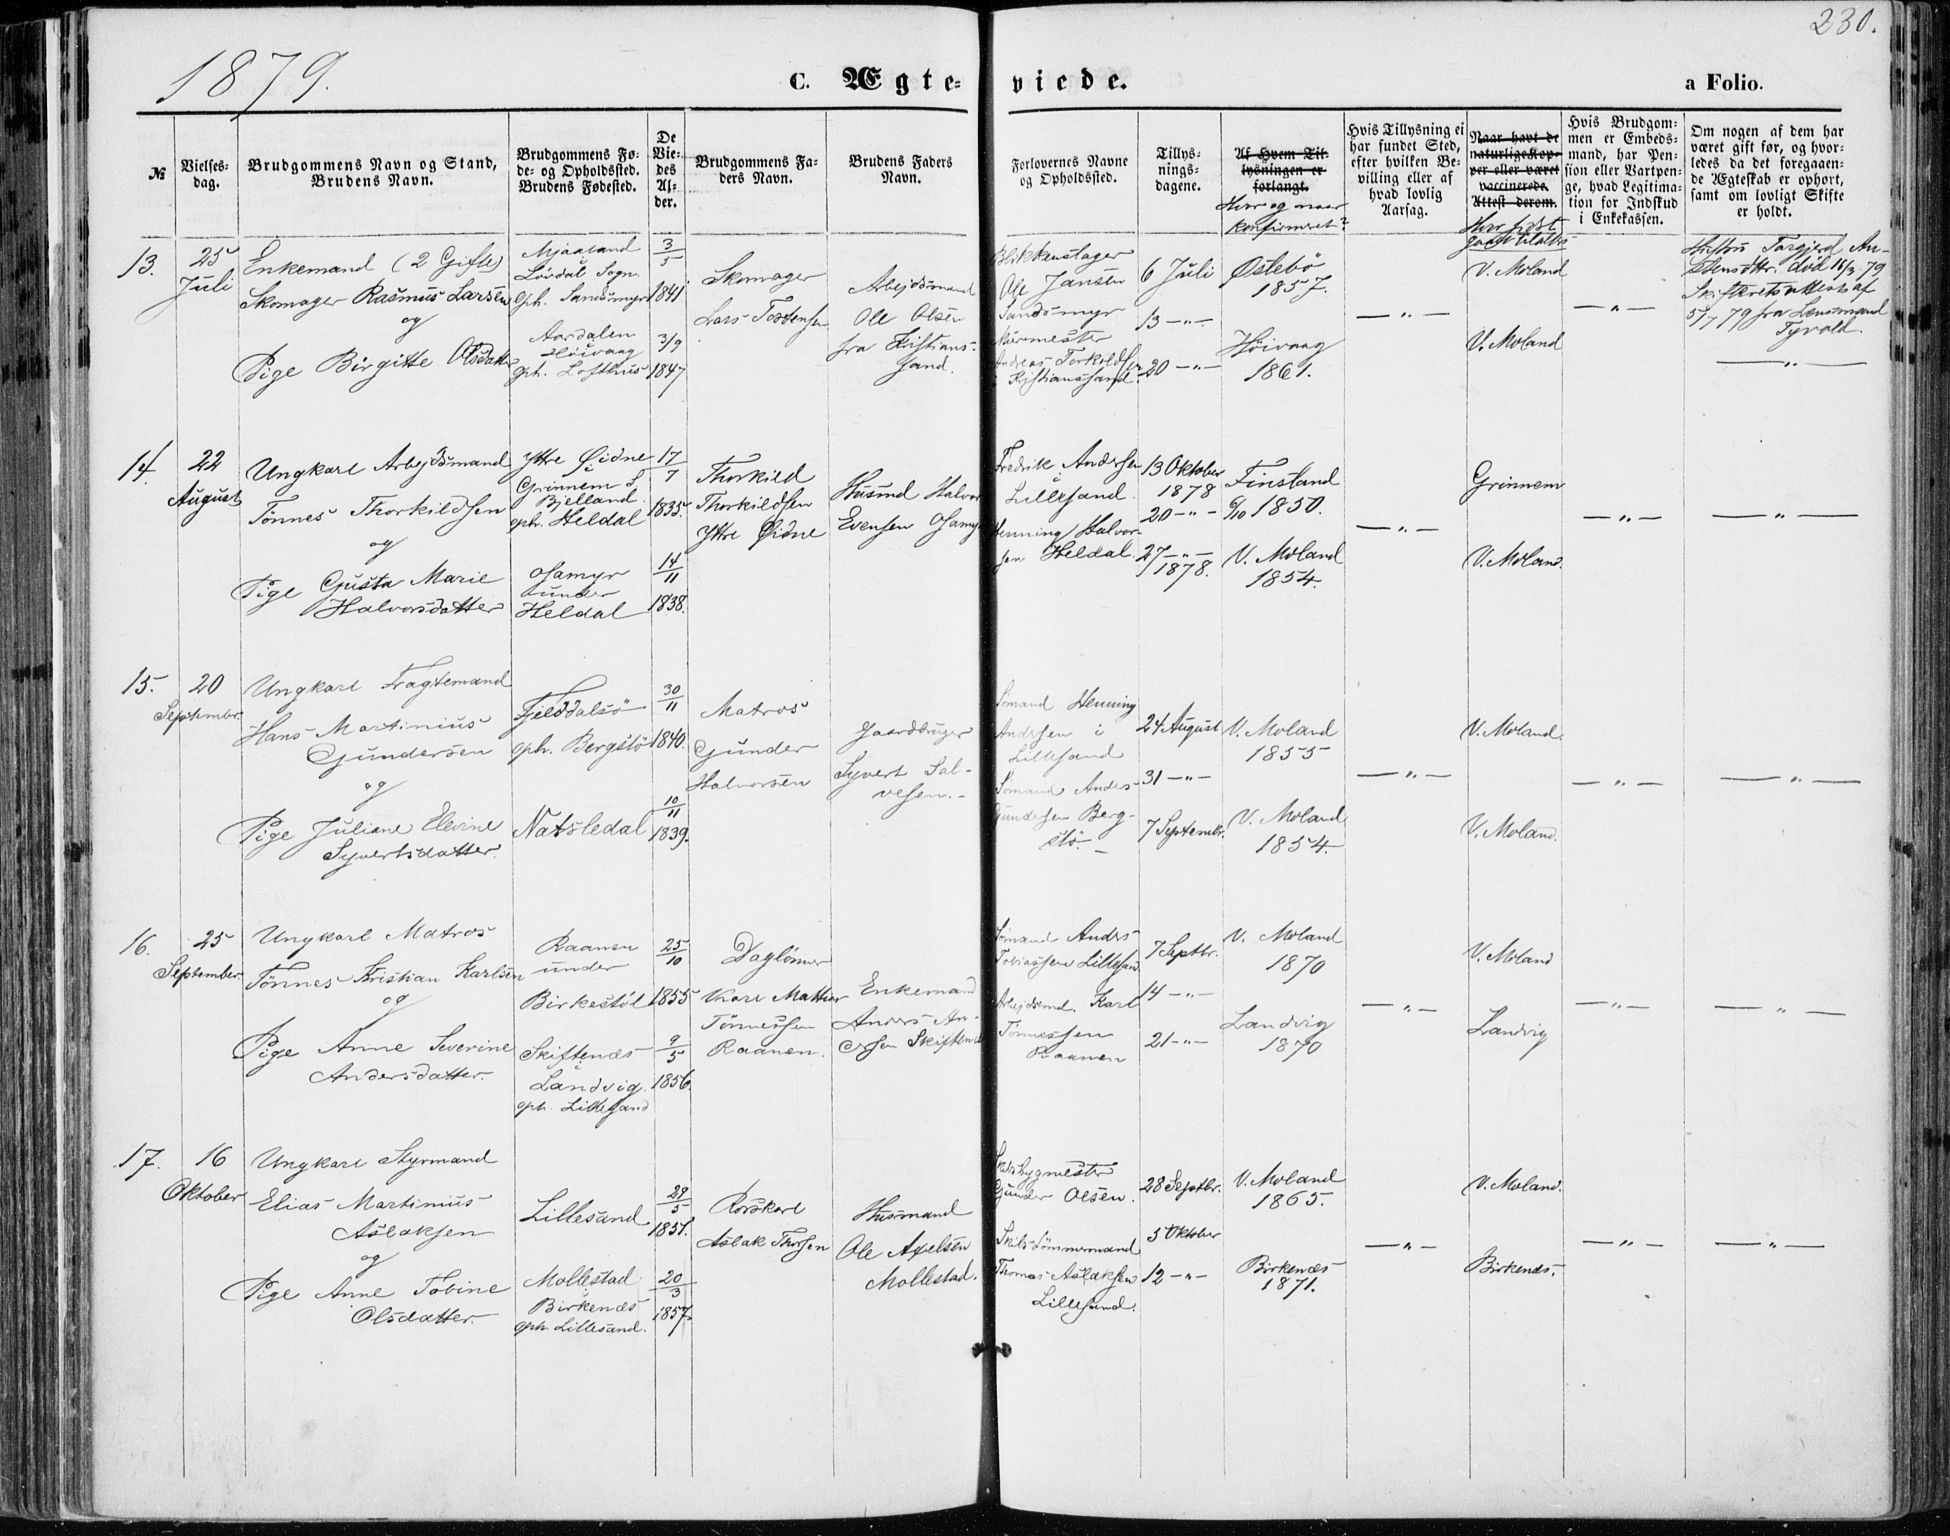 1879.
230.
C. Ægte-
viede.
a Folio.
№
Vielses-
dag.
Brudgommens Navn og Stand,
Brudens Navn.
Brudgommens Fø-
de- og Opholdssted.
Brudens Fødested.
De
Vie-
des
Al-
der.
Brudgommens Fa-
ders Navn.
Brudens Faders
Navn.
Forlovernes Navne
og Opholdssted.
Tillys-
nings-
dagene.
Af Hvem Til-
lysningen er
forlangt.
Hvor og naar
konfirmeret?
Hvis Tillysning ei
har fundet Sted,
efter hvilken Be-
villing eller af
hvad lovlig
Aarsag.
Naar havt de
naturlige Kop-
per eller været
vaccinerede.
Attest derom.
Hvor sidst
Hvis Brudgom-
men er Embeds-
mand, har Pen-
sion eller Vartpen-
ge, hvad Legitima-
tion for Indskud
i Enkekassen.
Om nogen af dem har
været gift før, og hvor-
ledes da det foregaaen-
de Ægteskab er ophørt,
samt om lovligt Skifte
er holdt.
13.
25
Juli
Enkemand (2 Gifte)
Skomager Rasmus Larsen
og
Pige Birgitte Olsdatter
Mjaaland
Lördal Sogn.
oph. Sandsmyr
Aardalen
Höivaag
oph. Lofthus
3/5
1841
3/9
1847
Skomager
Lars Tostensen
Arbejdsmand
Ole Olsen
fra Kristians-
sand.
Blikkenslager
Ole Jansen
Sandsmyr
Murmester
Andreas Torkildsen
Kristianssand.
6 Juli
13 -"-
20 -"-
Østebö
1857.
Höivaag
1861.
-"-
V. Moland
V. Moland
-"-
Hustru Torgjerd An-
stensdttr. död 16/3 79
Skifteretsattest af
5/7 79 fra Lensmand
Tyvold.
-"-
14.
22
August
Ungkarl Arbejdsmand
Tönnes Thorkildsen
og
Pige Gusta Marie
Halvorsdatter
Yttre Øidne
i
Grinnem S.
Bjelland
oph. Heldal
Osamyr
under
Heldal
17/7
1835.
14/11
1838.
Thorkild
Thorkildsen
Yttre Øidne
Husmd Halvor
Evensen Osamyr
Fredrik Andersen
Lillesand.
Henning Halvor-
sen Heldal.
13 Oktober
1878
20 -"-
27 -"-
1878.
Finsland
6/10 1850.
V. Moland
1854.
-"-
Grinnem
V. Moland.
-"-
-"-
15.
20
Septembr.
Ungkarl Fragtemand
Hans Martinius
Gundersen
og
Pige Juliane Elevine
Syvertsdatter.
Fjelddalsö
oph. Bergstö
Natsledal
30/11
1840.
10/11
1839.
Matros
Gunder
Halvorsen
Gaardbruger
Syvert Sal-
vesen.-
Sömand Henning
Andersen i
Lillesand
Sömand Anders
Gundersen Berg-
stö. -
24 August
31 -"-
7 Septembr.
V. Moland
1855
V. Moland
1854.
-"-
V. Moland.
V. Moland.
-"-
-"-
16.
25
September.
Ungkarl Matros
Tönnes Kristian Karlsen
og
Pige Anne Severine
Andersdatter.
Raanen
under
Birkestöl
Skiftenæs
i
Landvig.
oph. Lillesand
25/10
1855
9/5
1856.
Daglönner
Karl Mathias
Tönnessen
Raanen.
Enkemand
Anders An-
ersen Skiftenæs
Sömand Anders
Tobiassen Lillesand
Arbejdsmd. Karl
Tönnessen
Raanen
7 Septbr.
14 -"-
21 -"-
V. Moland
1870
Landvig
1870
-"-
V. Moland
Landvig
-"-
-"-
17.
16
Oktober
Ungkarl Styrmand
Elias Martinius
Aslaksen
og
Pige Anne Tobine
Olsdatter.
Lillesand
Mollestad
i
Birkenæs
oph. Lillesand.
29/5
1851.
20/3
1857.
Rorskarl
Aslak Thorsen
Husmand
Ole Axelsen
Mollestad.
Skibsbygmester
Gunder Olsen.
Skibstömmermand
Thomas Aslaksen
Lillesand.
28 Septbr.
5 Oktober
12 -"-
V. Moland
1865.
Birkenæs
1871.
-"-
V. Moland.
Birkenæs.
-"-
-"-